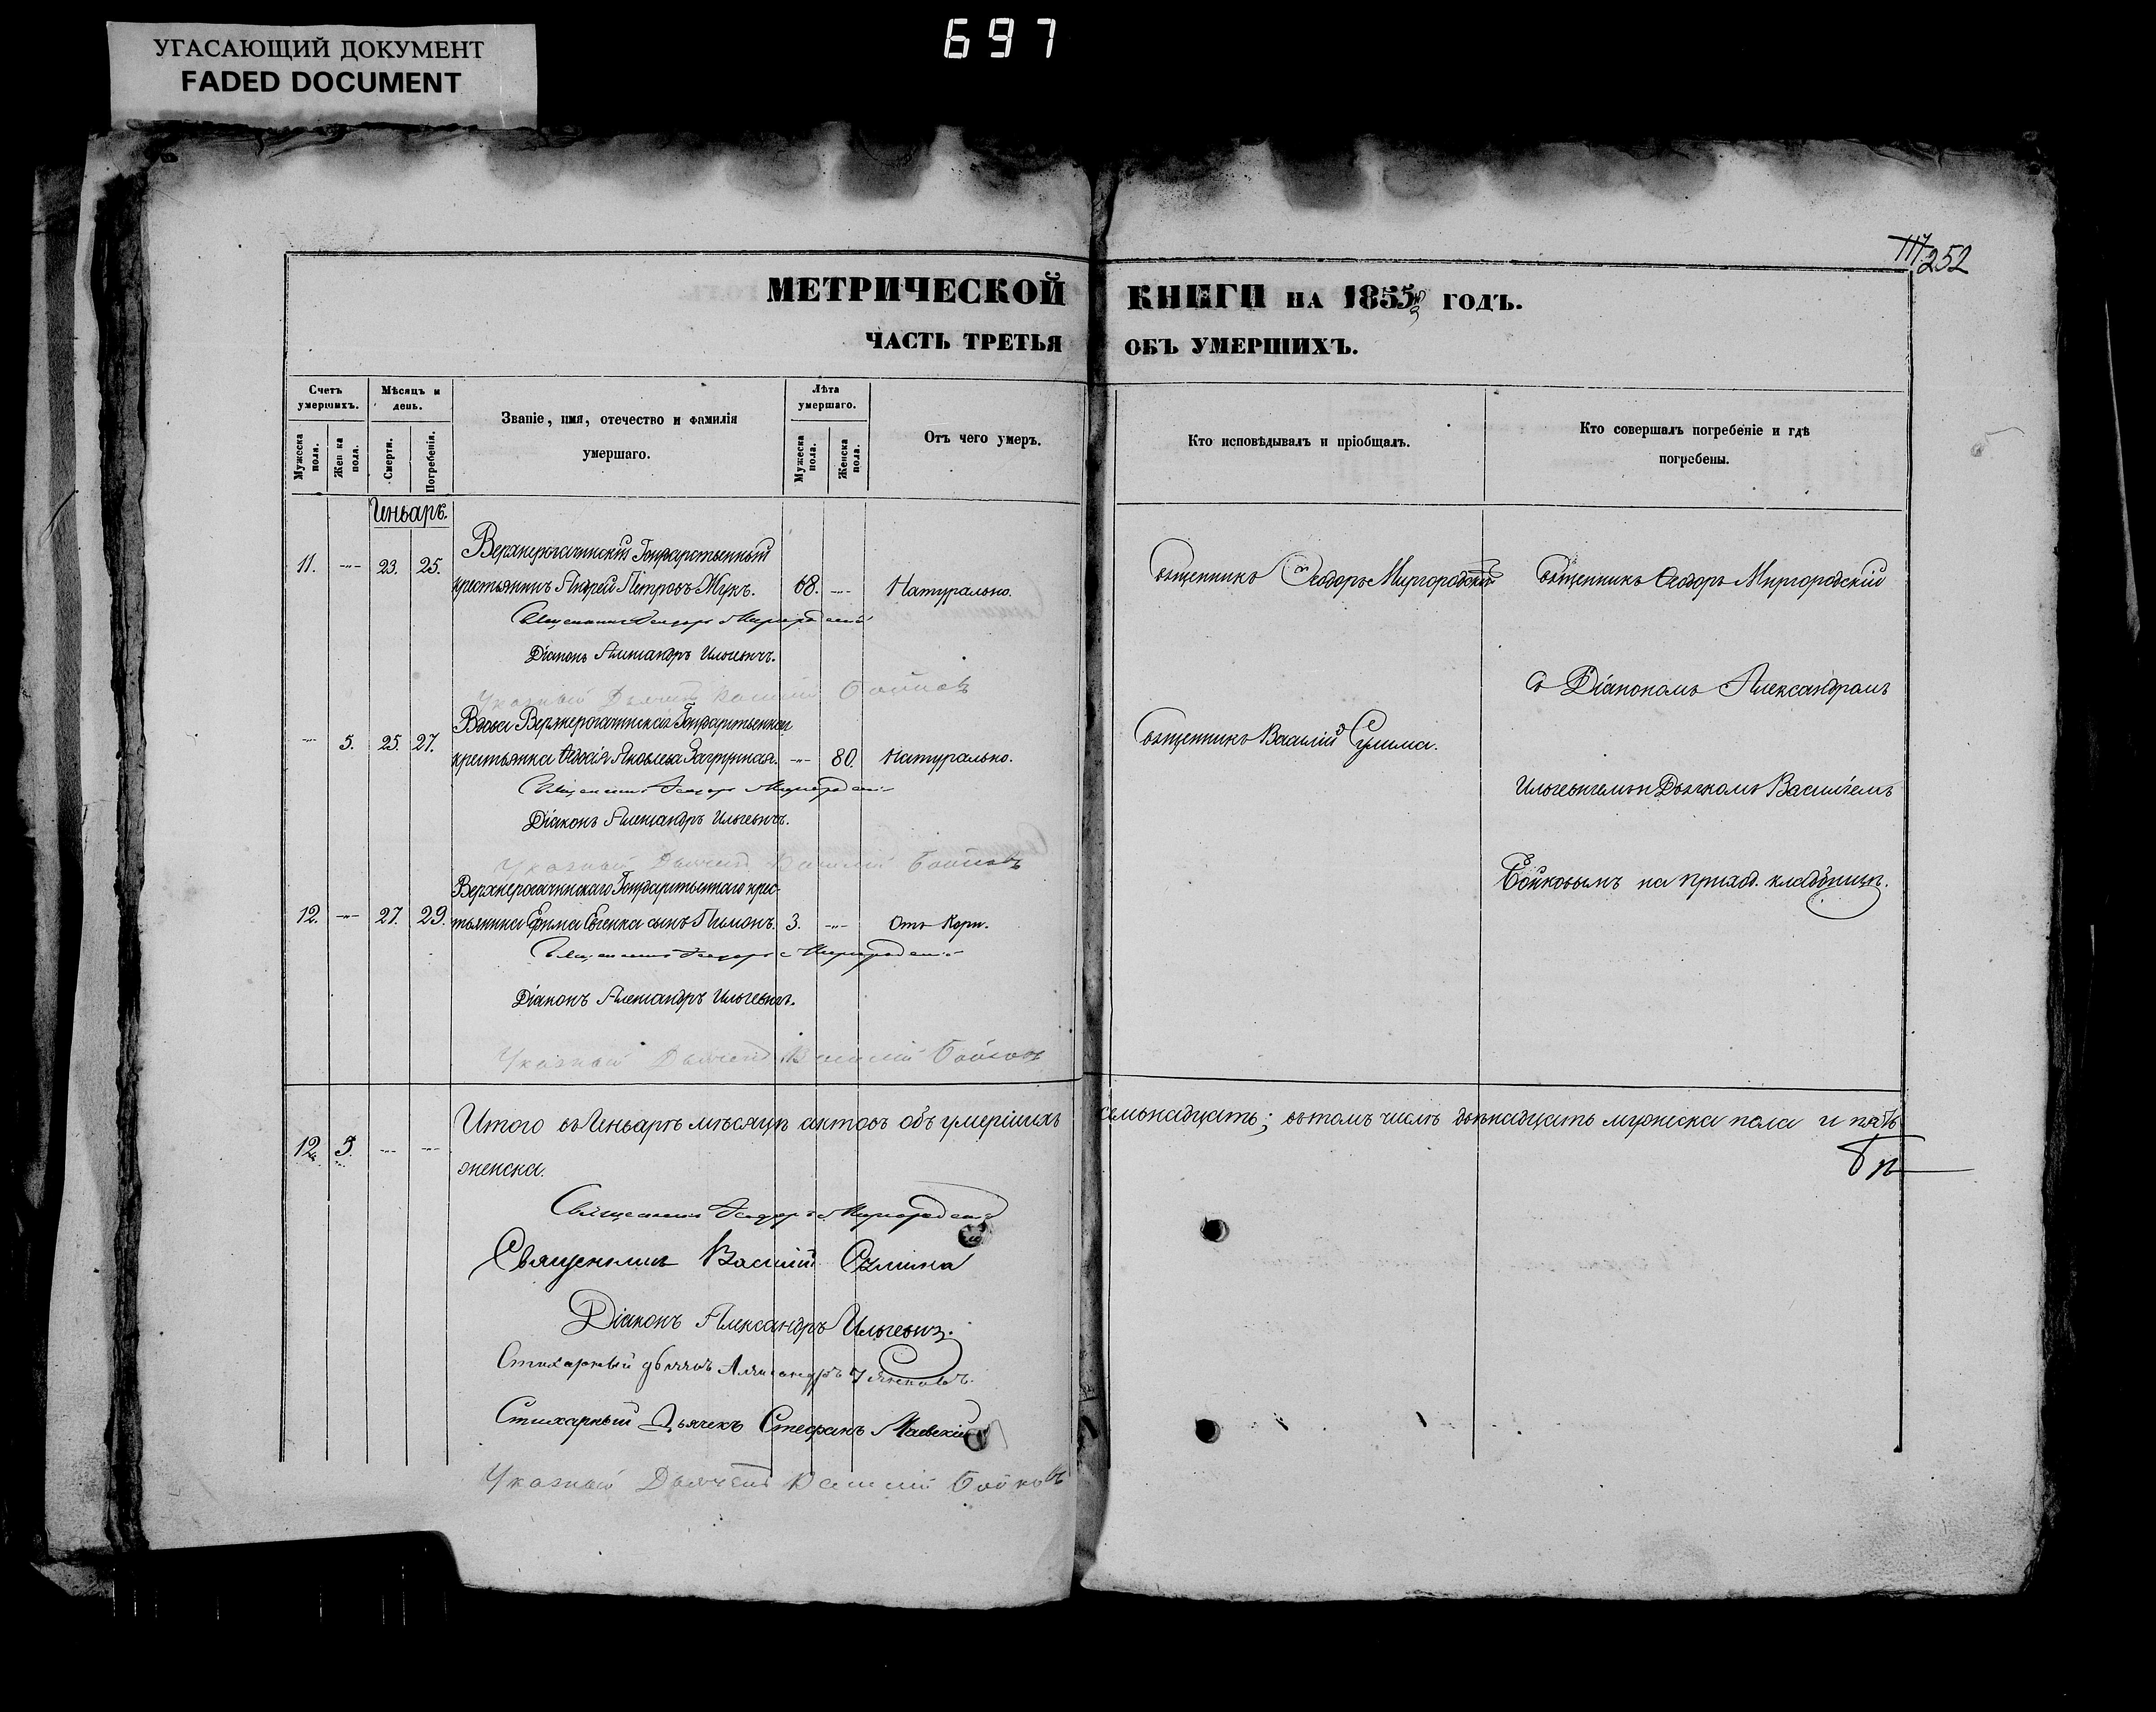 УГАСАЮЩИЙ ДОКУМЕНТ
FADED DOCUMENT
697
252
МЕТРИЧЕСКОЙ КНИГИ НА 1855 ГОДЪ.
ЧАСТЬ ТРЕТЬЯ ОБЪ УМЕРШИХЪ.
Счетъ умершихъ.
Мѣсяцъ и день.
Званіе, имя, отечество и фамилія умершаго.
Лѣта умершаго.
Отъ чего умеръ.
Кто исповѣдывалъ и пріобщалъ.
Кто совершалъ погребеніе и гдѣ погребены.
Мужеска пола.
Женска пола.
Смерти.
Погребенія.
Мужеска пола.
Женска пола.
Иньварь.
Верхнерогачинскій Государственный
11. 23. 25. крестьянинъ Андрей Петровъ Жукъ. 68. Натурально. Священникъ Феодоръ Миргородскій Священникъ Феодоръ Миргородскій
Священникъ Феодоръ Миргородскій
Діаконъ Александръ Ильгевичъ.
съ Діакономъ Александромъ
Указный Дьячекъ Василій Бойковъ
Вдова Верхнерогачинская Государственная
5. 25. 27. крестьянка Яковлева 80. Натурально. Священникъ Василій Сулима.
Священникъ Феодоръ Миргородскій
Ильгевичемъ и Дьячкомъ Василіемъ
Діаконъ Александръ Ильгевичъ.
Указный Дьячекъ Василій Бойковъ
Бойковымъ на приход. кладбищѣ.
Верхнерогачинскаго Государственнаго крес-
12. 27. 29. тьянина Ефима сынъ Пимонъ. 3. Отъ Кори.
Священникъ Феодоръ Миргородскій
Діаконъ Александръ Ильгевичъ.
Указный Дьячекъ Василій Бойковъ
Итого въ Иньварѣ мѣсяцѣ актовъ объ умершихъ семьнадцать; въ томъ числѣ двѣнадцать мужеска пола и пять
12. 5. женска.
Священникъ Феодоръ Миргородскій
Священникъ Василій Сулима
Діаконъ Александръ Ильгевичъ.
Стихарный дьячокъ Александръ
Стихарный Дьячекъ Стефанъ Маевскій
Указный Дьячекъ Василій Бойковъ